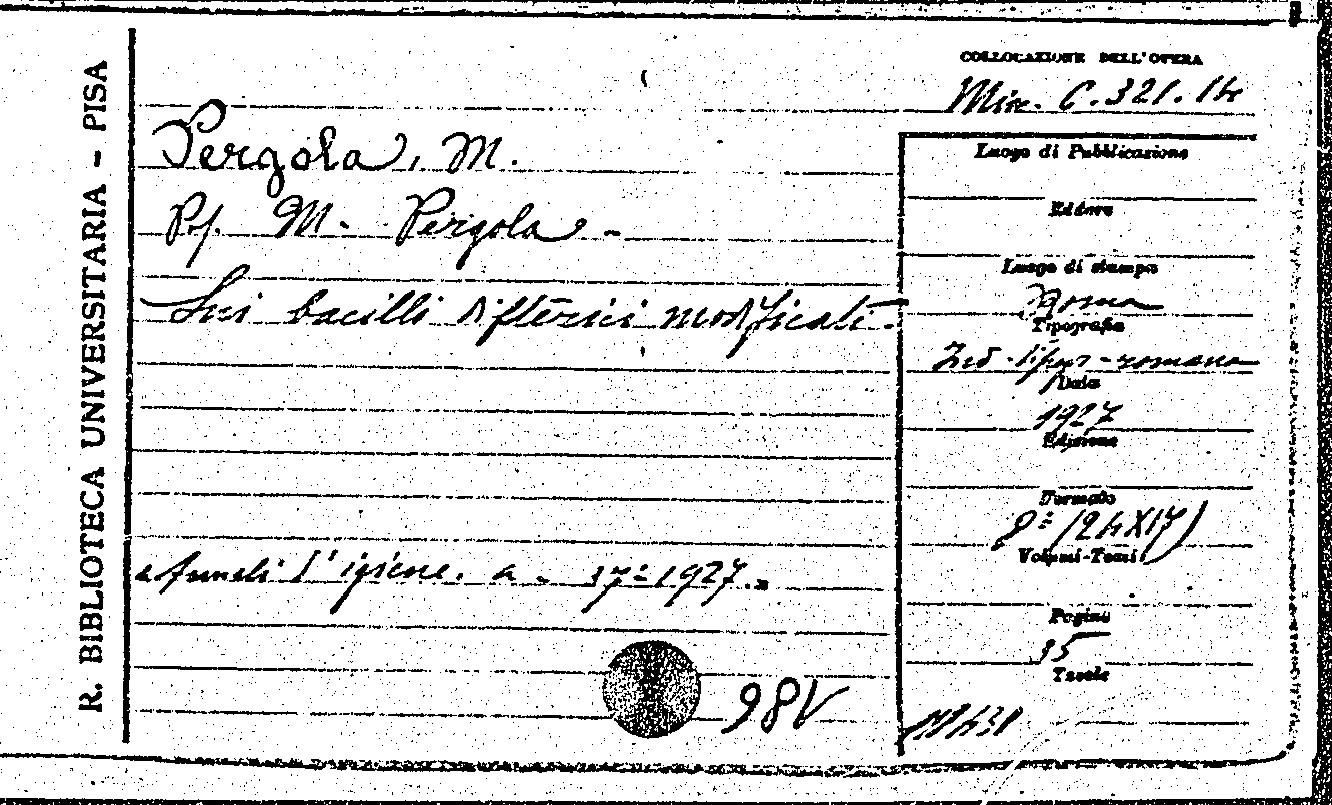 R. BIBLIOTECA UNIVERSITARIA - PISA
COLLOCAZIONE DELL'OPERA
Misc. C.321.14
Pergola, M.
Pf. M. Pergola -
Sui bacilli difterici modificati.
Annali d'igiene. a - 37º 1927.
98V
Luogo di Pubblicazione
Editore
Luogo di stampa
Roma
Tipografia
Ind. tipgr-romana
Data
1927
Edizione
Formato
8º (24X17)
Volumi-Tomi
Pagine
35
Tavole